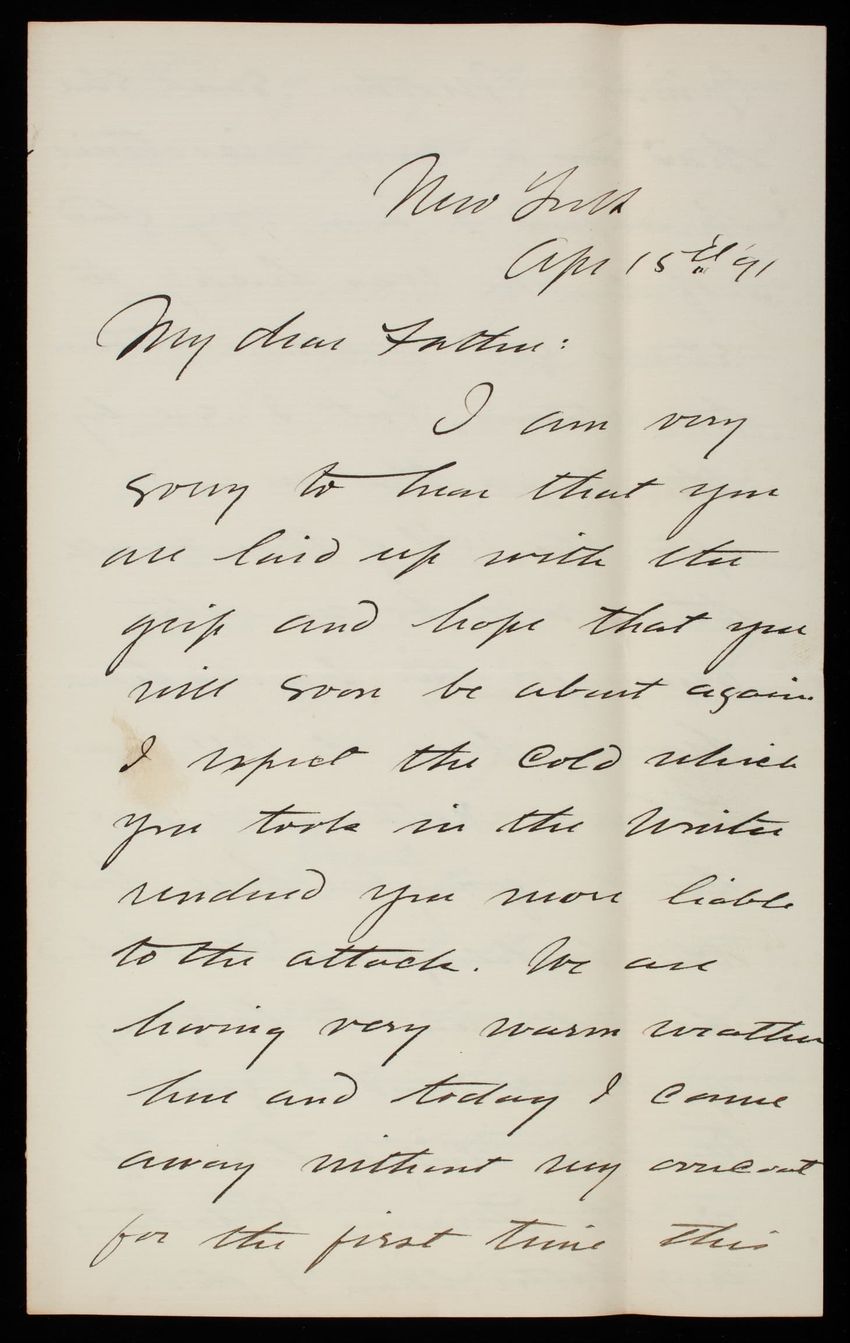 New York
Apr 15th '91
My dear Father:
I am very
sorry to hear that you
are laid up with the
grip and hope that you
will soon be about again.
I expect the cold which
you took in the Winter
rendered you more liable
to the attack. We are
having very warm weather
here and today I came
away without my overcoat
for the first time this